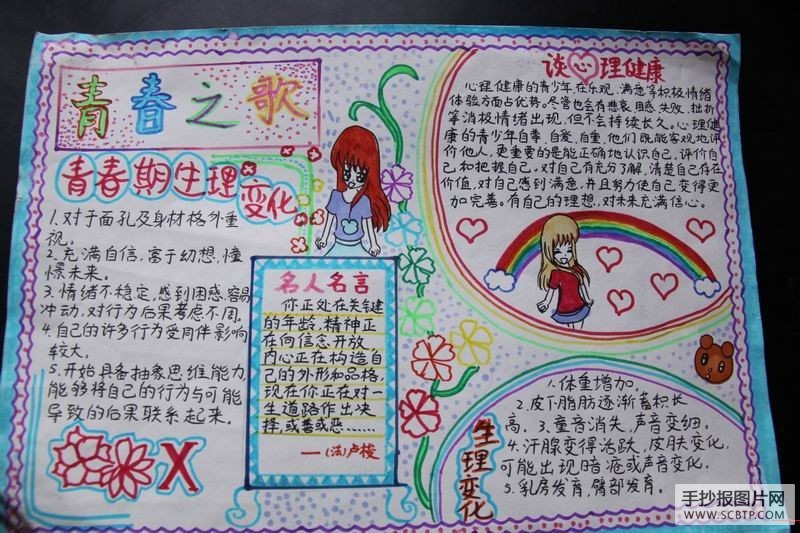 青春之歌
青春期生理
变化
1.对于面孔及身材格外重
视。
2.充满自信,富于幻想,憧
憬未来。
3.情绪不稳定,感到困惑,容易
冲动,对行为后果考虑不周。
4.自己的许多行为受同伴影响
较大。
5.开始具备抽象思维能力
能够将自己的行为与可能
导致的后果联系起来。
X
名人名言
你正处在关键
的年龄,精神正
在向信念开放,
内心正在构造自
己的外形和品格,
现在你正在对一
生道路作出决
择,或善或恶……
—(法)卢梭
谈心理健康
心理健康的青少年,在乐观、满意等积极情绪
体验方面占优势。尽管也会有悲哀、困惑、失败、挫折
等消极情绪出现,但不会持续长久。心理健
康的青少年自尊、自爱、自重,他们既能客观地评
价他人,更重要的是能正确地认识自己,评价自
己和把握自己,对自己有充分了解,清楚自己存在
价值,对自己感到满意,并且努力使自己变得更
加完善。有自己的理想,对未来充满信心。
生理变化
1.体重增加。
2.皮下脂肪逐渐蓄积长
高。3.童音消失,声音变细。
4.汗腺变得活跃,皮肤变化,
可能出现暗疮或声音变化。
5.乳房发育,臀部发育。
手抄报图片网
WWW.SCBTP.COM